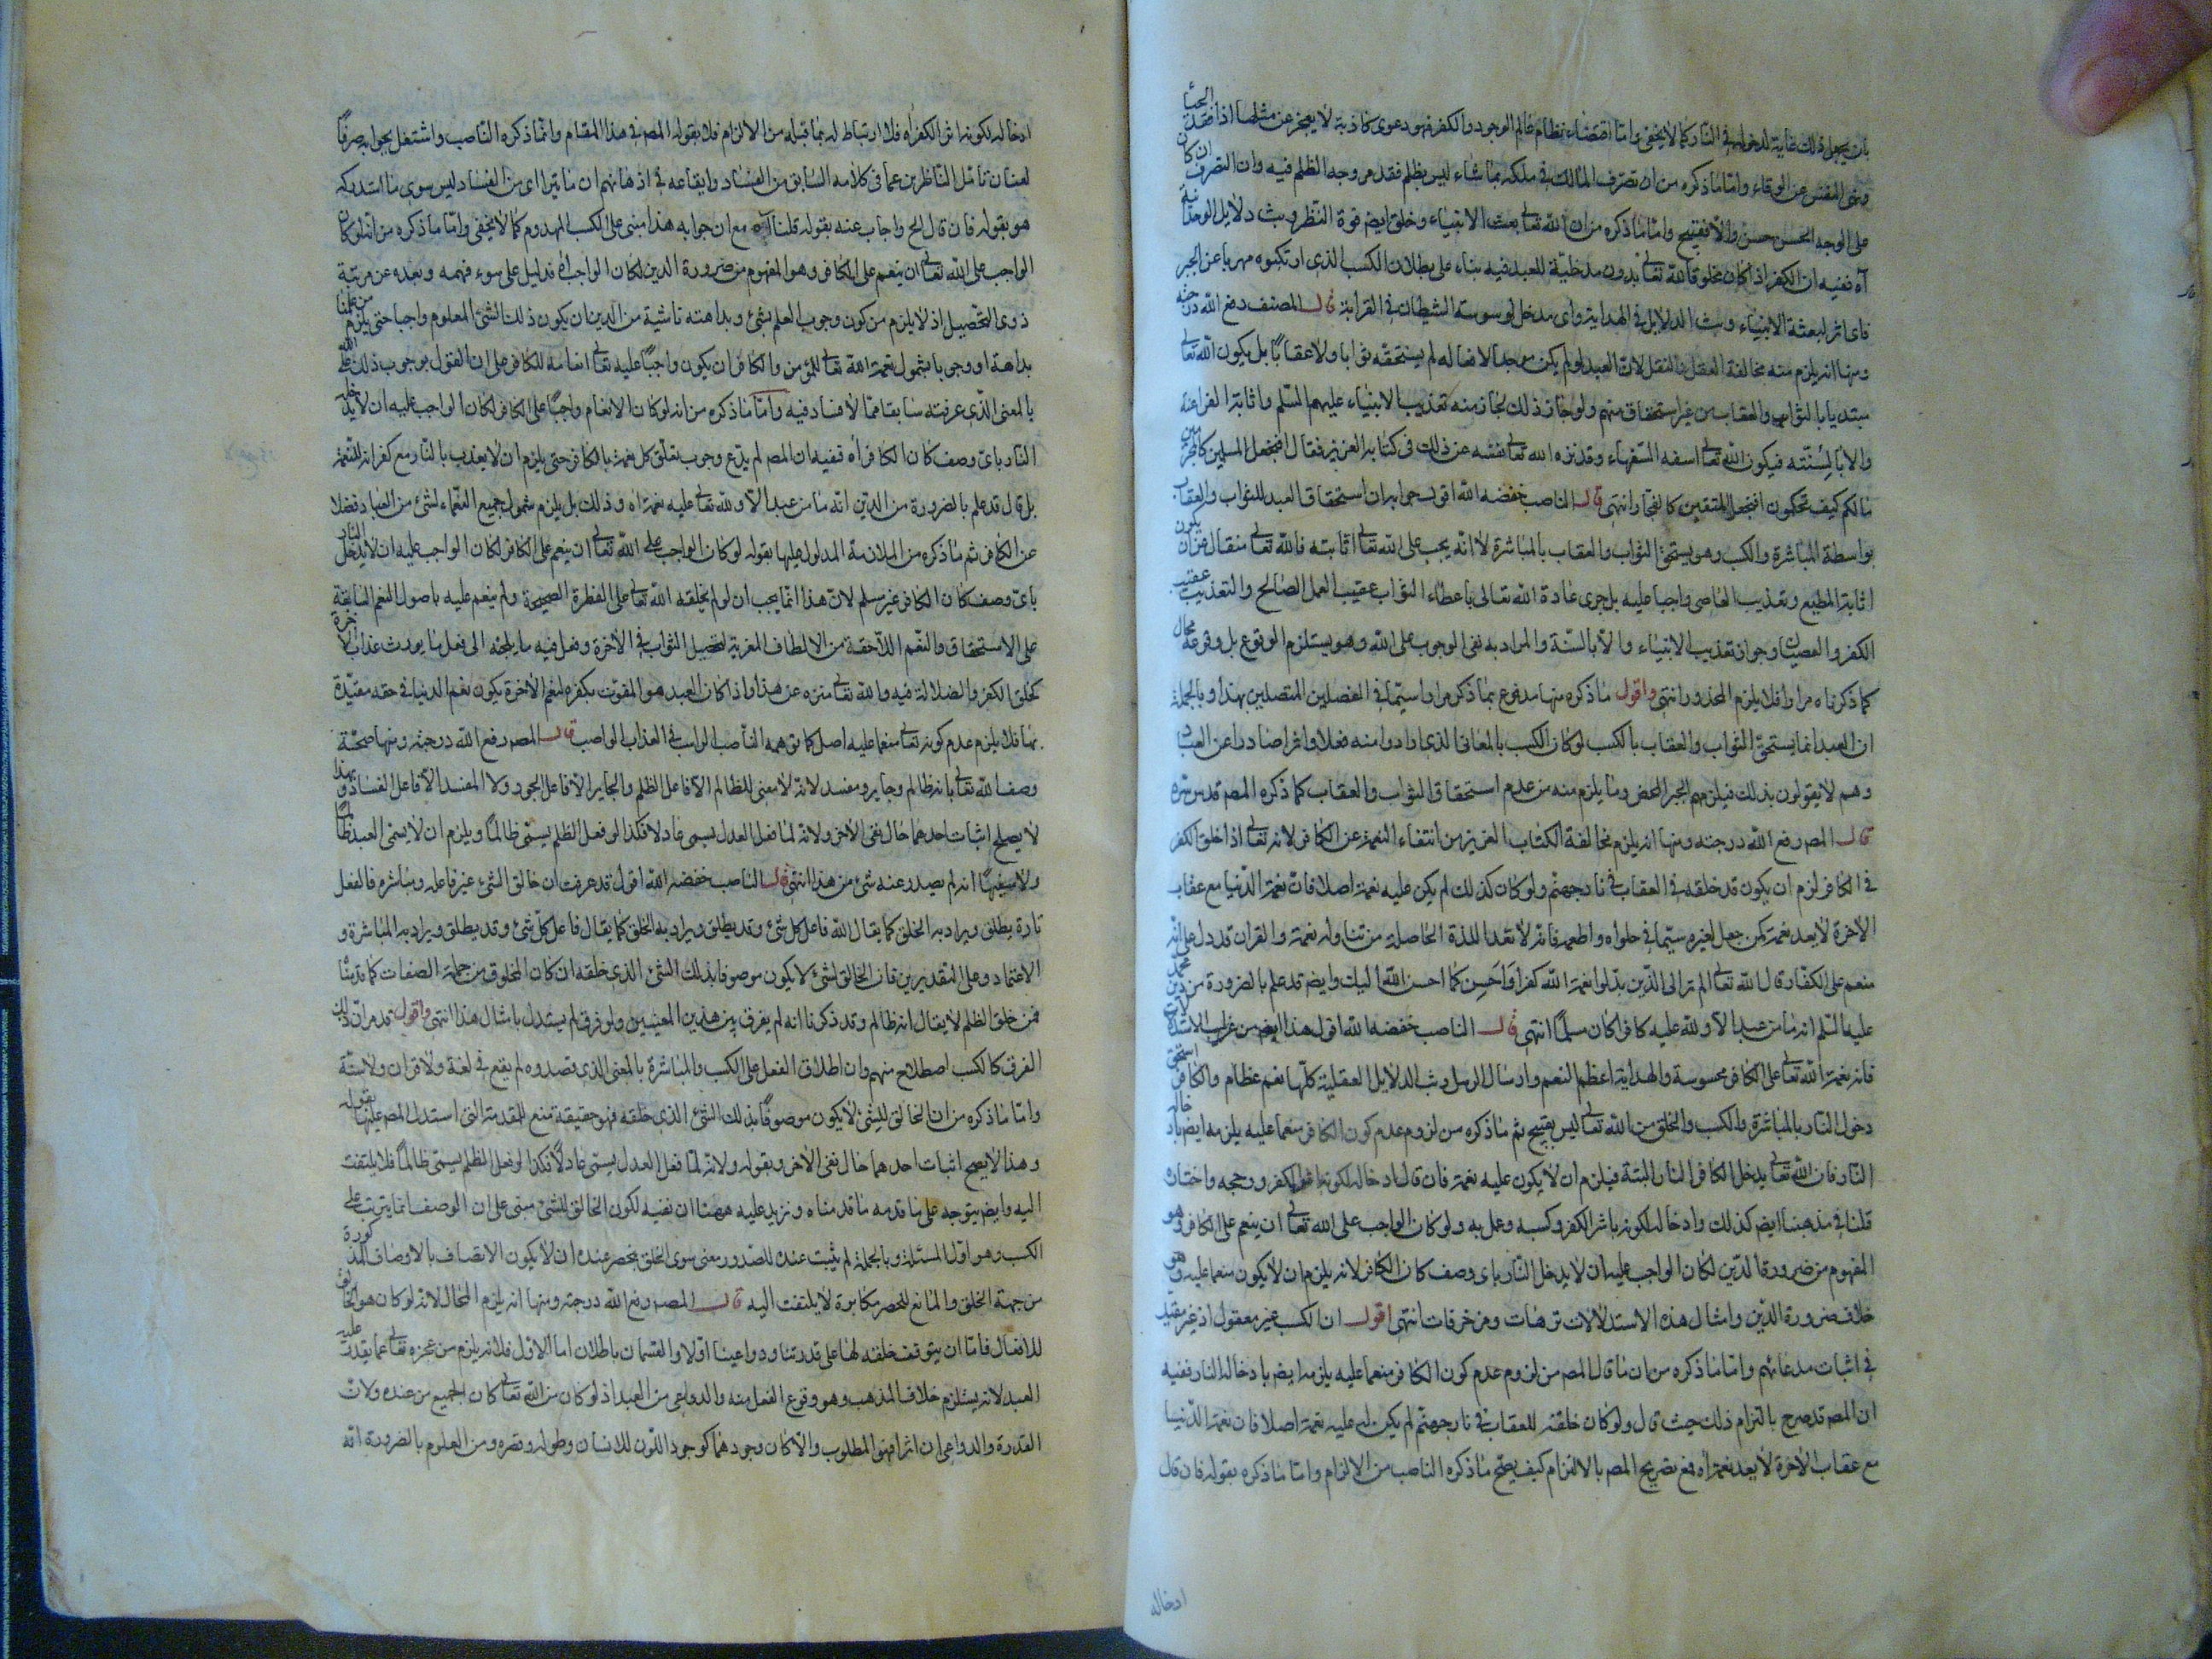 بان يجعل ذلك غاية لدخوله في النار كما لا يخفى واما اقتضاء نظام عالم الوجود والكفر فهو دعوى كاذبة لا يعجز عن مثلها اذا فقد الحيا
ونهى المفتي عن الوقاء واما ما ذكره من ان تصرف المالك في ملكه بما شاء ليس بظلم فقد مر وجه الظلم فيه وان التصرف ان كان
على الوجه الحسن حسن والا فقبيح واما ما ذكره من ان الله تعالى بعث الانبياء وخلق ايضا قوة النظر وبث دلايل الوحدانية
آه ففيه ان الكفر اذا كان مخلوقا لله تعالى بدون مدخلية للعبد فيه بناء على بطلان الكسب الذي ارتكبوه مهربا عن الجبر
فاى اثر لبعثة الانبياء وبث الدلايل في الهداية واى مدخل لوسوسة الشيطان في الغراية قال المصنف رفع الله درجته
ومنها انه يلزم منه مخالفة العقل والنقل لان العبد لو لم يكن موجدا لافعاله لم يستحق ثوابا ولا عقابا بل يكون الله تعالى
مبتديا بالثواب والعقاب من غير استحقاق منهم ولو جاز ذلك لجاز منه تعذيب الانبياء عليهم السلم واثابة الفراعنة
والابالسة فيكون الله تعالى اسفه السفهاء وقد نزه الله تعالى نفسه عن ذلك في كتابه العزيز فقال افنجعل المسلمين كالمجرمين
مالكم كيف تحكمون افنجعل المتقين كالفجار انتهى قال الناصب خفضه الله اقول جوابه ان استحقاق العبد للثواب والعقاب
بواسطة المباشرة والكسب وهو يستحق الثواب والعقاب بالمباشرة لا انه يجب على الله تعالى اثابته فالله تعالى متعال عن ان يكون
اثابة المطيع وتعذيب العاصي واجبا عليه بل جرى عادة الله تعالى باعطاء الثواب عقيب العمل الصالح والتعذيب عقيب
الكفر والعصيان وجواز تعذيب الانبياء والابالسة والمراد به نفى الوجوب على الله وهو يستلزم الوقوع بل وقوعه محال
كما ذكرناه مرارا فلا يلزم المحذور انتهى واقول ما ذكره منها مدفوع بما ذكر مرارا سيما في الفصلين المتصلين بهذا وبالجملة
ان العبد انما يستحق الثواب والعقاب بالكسب لو كان الكسب بالمعانى الذى ارادوا منه فعلا واثرا صادرا عن العباد
وهم لا يقولون بذلك فيلزمهم الجبر المحض وما يلزم منه من عدم استحقاق الثواب والعقاب كما ذكره المصم قدس سره
قال المصم رفع الله درجته ومنها انه يلزم مخالفة الكتاب العزيز من انتفاء النعمة عن الكافر لانه تعالى اذا خلق الكفر
في الكافر لزم ان يكون قد خلقه في العقاب في نار جهنم ولو كان كذلك لم يكن عليه نعمة اصلا فان نعمة الدنيا مع عقاب
الآخرة لا يعد نعمة كمن جعل لغيره سيما في حلواه واطعمه فانه لا تعد اللذة الحاصلة من تناوله نعمة والقران قد دل على انه
منعم على الكفار قال الله تعالى الم تر الى الذين بدلوا نعمة الله كفرا وَاَحْسِن كما احسن الله اليك وايضا قد علم بالضرورة من دين محمد
عليه السلم انه ما من عبد الا ولله عليه كافرا كان مسلما انتهى قال الناصب خفضه الله اقول هذا ايضم من غرايب الاستدلالات
فانه نعمة الله تعالى على الكافر محسوسة والهداية اعظم النعم وارسال الرسل وبث الدلايل العقلية كلها نعم عظام والكافر استحق
دخول النار بالمباشرة والكسب والخلق من الله تعالى ليس بقبيح ثم ما ذكره من لزوم عدم كون الكافر منعما عليه يلزمه ايضم بادخاله
النار فان الله تعالى يدخل الكافر النار البتة فيلزم ان لا يكون عليه نعمة فان قال ادخاله لكونه اثر الكفر ورجحه واختاره
قلنا في مذهبنا ايضم كذلك وادخاله لكونه باشر الكفر وكسبه وعمل به ولو كان الواجب على الله تعالى ان ينعم على الكافر وهو
المفهوم من ضرورة الدين لكان الواجب عليه ان لا يدخل النار باى وصف كان الكافر لانه يلزم ان لا يكون منعما عليه وهو
خلاف ضرورة الدين وامثال هذه الاستدلالات ترهات ومزخرفات انتهى اقول ان الكسب غير معقول اذ غير مفيد
في اثبات مدعاهم واما ما ذكره من ان ما قال المصم من لزوم عدم كون الكافر منعما عليه يلزمه ايضم بادخاله النار ففيه
ان المصم قد صرح بالتزام ذلك حيث قال ولو كان خلقه للعقاب في نار جهنم لم يكن له عليه نعمة اصلا فان نعمة الدنيا
مع عقاب الآخرة لا يعد نعمة آه فمع تصريح المصم بالالتزام كيف يصح ما ذكره الناصب من الالزام واما ما ذكره بقوله فان قال
ادخاله
ادخاله لكونه اثر الكفر آه فلا ارتباط له بما قبله من الالزام فلا يقوله المصم في هذا المقام وانما ذكره الناصب واشتغل بجوابه صرفا
لعنان تامل الناظرين عما في كلامه السابق من الفساد وايقاعه في اذهانهم ان ما يترااى من الفساد ليس سوى ما استدركه
هو بقوله فان قال الخ واجاب عنه بقوله قلنا آه مع ان جوابه هذا مبنى على الكسب المهدوم كما لا يخفى واما ما ذكره من انه لو كان
الواجب على الله تعالى ان ينعم على الكافر وهو المفهوم من ضرورة الدين لكان الواجب آه فدليل على سوء فهمه وبعده عن مرتبة
ذوى التحصيل اذ لا يلزم من كون وجوب العلم بشئ وبداهته ناشية من الدين ان يكون ذلك الشئ المعلوم واجبا حتى يلزم من علمنا
بداهة او وجوبا بشمول نعمة الله تعالى للمؤمن والكافر ان يكون واجبًا عليه تعالى انعامه للكافر على ان القول بوجوب ذلك على الله
بالمعنى الذى عرفته سابقا مما لا فساد فيه واما ما ذكره من انه لو كان الانعام واجبًا على الكافر لكان الواجب عليه ان لا يدخله
النار باى وصف كان الكافر آه ففيه ان المصم لم يدع وجوب تعلق كل نعمة بالكافر حتى يلزم ان لا يعذب بالنار مع كفرانه للنعمة
بل قال قد علم بالضرورة من الدين انه ما من عبد الا ولله تعالى عليه نعمة آه وذلك بل يلزم شمول جميع النعماء لشئ من العباد فضلا
عن الكافر ثم ما ذكره من الملازمة المدلول عليها بقوله لو كان الواجب على الله تعالى ان ينعم على الكافر لكان الواجب عليه ان لا يدخل النار
باى وصف كان الكافر غير مسلم لان هذا انما يجب ان لو لم يخلقه الله تعالى على الفطرة الصحيحة ولم ينعم عليه باصول النعم السابقة
على الاستحقاق والنعم اللاحقة من الالطاف المقربة لتحصيل الثواب في الآخرة وفعل فيه ما يلجئه الى فعل ما يورث عذاب الآخرة
كخلق الكفر والضلالة فيه والله تعالى منزه عن هذا واذا كان العبد هو المفوت بكفره لنعم الآخرة يكون نعم الدنيا في حقه مقيدة
بها فلا يلزم عدم كونه تعالى منعما عليه اصلا كما توهمه الناصب الواجب في العذاب الواصب قال المصم رفع الله درجته ومنها صحة
وصف الله تعالى بانه ظالم وجاير ومفسد لانه لا معنى للظالم الا فاعل الظلم والجاير الا فاعل الجور ولا المفسد الا فاعل الفساد ولهذا
لا يصلح اثبات احدهما حال نفى الآخر ولانه لما فعل العدل يسمى عادلا فكذا لو فعل الظلم يسمى ظالمًا ويلزم ان لا يسمى العبد ظالمًا
ولا سفيهًا انه لم يصدر عنه شئ من هذا انتهى قال الناصب خفضه الله اقول قد عرفت ان خالق الشئ غير فاعله ومباشره فالفعل
تارة يطلق ويراد به الخلق كما يقال الله فاعل كل شئ وقد يطلق ويراد به الخلق كما يقال فاعل كل شئ وقد يطلق ويراد به المباشرة و
الاعتماد وعلى التقديرين فان الخالق لشئ لا يكون موصوفا بذلك الشئ الذى خلقه ان كان المخلوق من جملة الصفات كما قدمنا
فمن خلق الظلم لا يقال انه ظالم وقد ذكرنا انه لم يفرق بين هذين المعنيين ولو فرق لم يستدل بامثال هذا انتهى واقول قد مر ان ذلك
الفرق كالكسب اصطلاح منهم وان اطلاق الفعل على الكسب والمباشرة بالمعنى الذى قصدوه لم يقع في لغة ولا قران ولا سنة
واما ما ذكره من ان الخالق للشئ لا يكون موصوفًا بذلك الشئ الذى خلقه فهو حقيقة منع للمقدمة التى استدل المصم عليها بقوله
وهذا لا يصح اثبات احدهما حال نفى الآخر وبقوله ولانه لما فعل العدل يسمى عادلًا فكذا لو فعل الظلم يسمى ظالمًا فلا يلتفت
اليه وايضم يتوجه على ما قدمه ما قدمناه ونزيد عليه ههنا ان نفيه لكون الخالق للشئ مبنى على ان الوصف انما يترتب على
الكسب وهو اول المسئلة وبالجملة لم يثبت عنده للصدور معنى سوى الخلق فحصر عنده ان لا يكون الاتصاف بالاوصاف المذكورة
من جهة الخلق والمانع للحصر مكابرة لا يلتفت اليه قال المصم رفع الله درجته ومنها انه يلزم المحال لانه لو كان هو الخالق
للافعال فاما ان يتوقف خلقه لها على قدرتنا ودواعينا اولا والقسمان باطلان اما الاول فلانه يلزم من عجزه تعالى عما يقدر عليه
العبد لانه يستلزم خلاف المذهب وهو وقوع الفعل منه والدواعى من العبد اذ لو كان من الله تعالى كان الجميع من عنده ولان
القدرة والدواعى ان اثرا فهو المطلوب والا كان وجودهما كوجود اللون للانسان وطوله وقصره ومن المعلوم بالضرورة انه